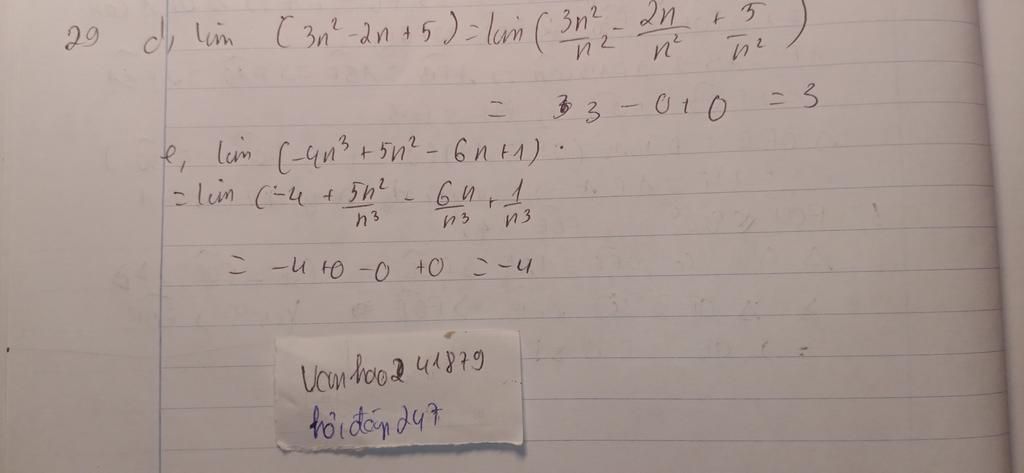 29 d, lim (3n² - 2n + 5) = lim (3n²/n² - 2n/n² + 5/n²)
= 3 - 0 + 0 = 3
e, lim (-4n³ + 5n² - 6n + 1).
= lim (-4 + 5n²/n³ - 6n/n³ + 1/n³
= -4 + 0 - 0 + 0 = -4
vanhao2 41879
hỏi đáp 247